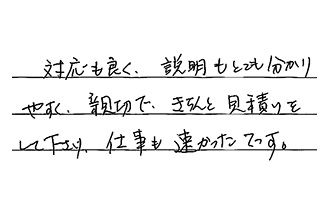 対応も良く、説明もとても分かり
やすく、親切で、きちんと見積りを
して下さり、仕事も速かったです。